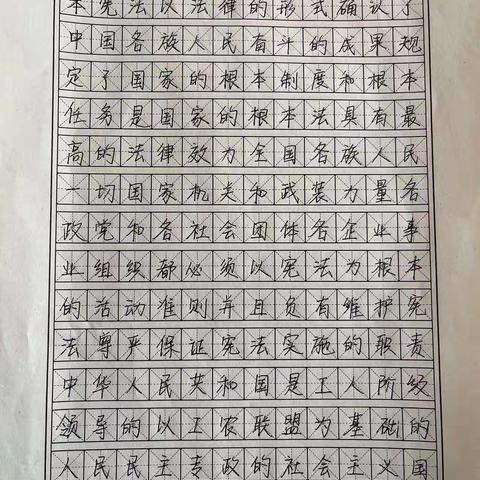 本宪法以法律的形式确认了
中国各族人民奋斗的成果规
定了国家的根本制度和根本
任务是国家的根本法具有最
高的法律效力全国各族人民
一切国家机关和武装力量各
政党和各社会团体各企业事
业组织都必须以宪法为根本
的活动准则并且负有维护宪
法尊严保证宪法实施的职责
中华人民共和国是工人阶级
领导的以工农联盟为基础的
人民民主专政的社会主义国